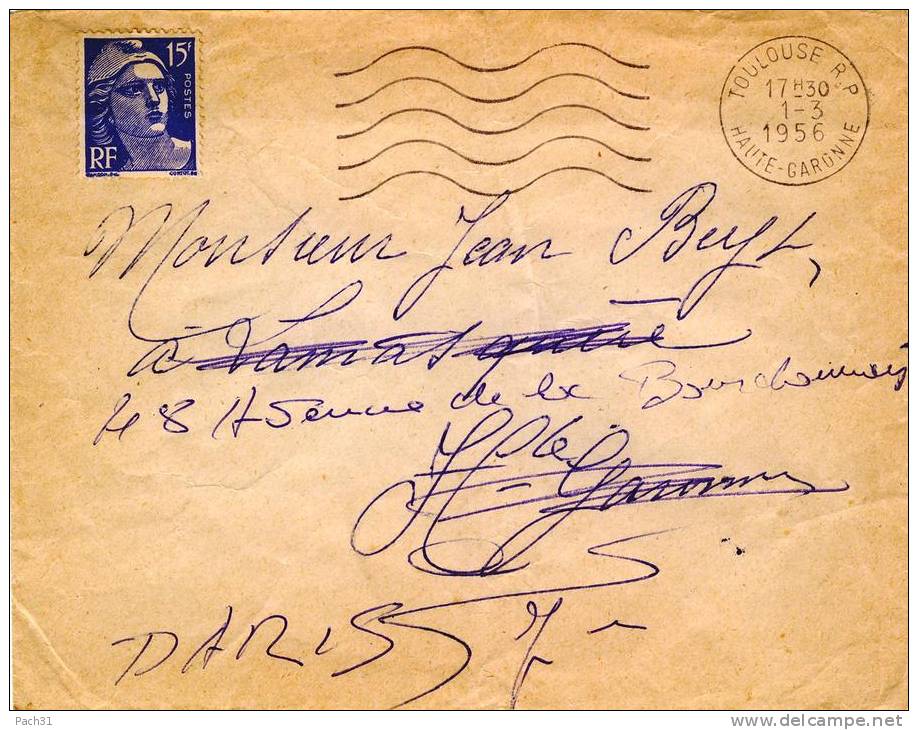 15F
POSTES
RF
TOULOUSE R.P
17H30
1-3
1956
HAUTE-GARONNE
Monsieur Jean Beyt,
à Lamasquère
48 Avenue de la Bourdonnais
Hte Garonne
PARIS 7
Pach31
www.delcampe.net